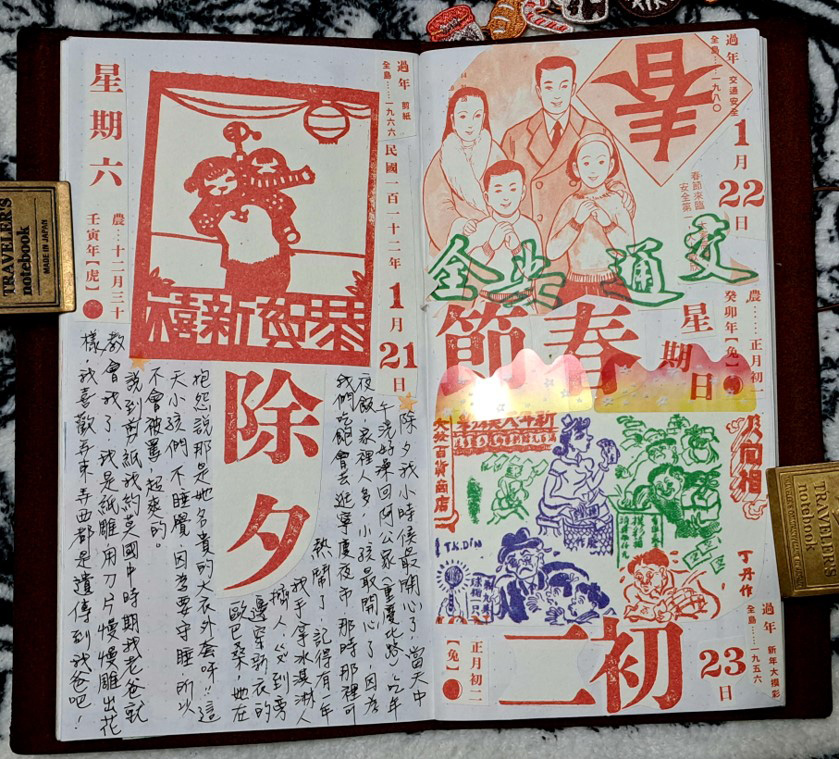 過年 剪紙
全島……一九六六
民國一百一十二年1月21日
恭賀新禧
星期六
農…十二月三十
壬寅年【虎】
除夕
除夕我小時候最開心了,當天中
午洗好澡回阿公家(重慶北路)吃年
夜飯,家裡人多,小孩最開心了,因為
我們吃飽會去逛寧夏夜市,那時那裡可
熱鬧了,記得有一年
我手拿冰淇淋人
擠人,到旁
邊穿新衣的
歐巴桑,她在
抱怨說那是她名貴的大衣外套呀!!這
天小孩們不睡覺,因為要守睡,所以
不會被罵,超爽的。
說到剪紙我約莫國中時期我老爸就
教會我了,我是紙雕,用刀片慢慢雕出花
樣,我喜歡弄東弄西都是遺傳到我爸吧!
過年 交通安全
全島……一九八〇
1月22日
春
春節來臨
安全第一
交通安全
農……正月初一
癸卯年【兔】
星期日
春節
過年 新年大摸彩
全島…一九五六
23日
丁丹作
大發百貨商店
T.K.DIN
初二
正月初二
【兔】
TRAVELER'S
notebook
MADE IN JAPAN
TRAVELER'S
notebook